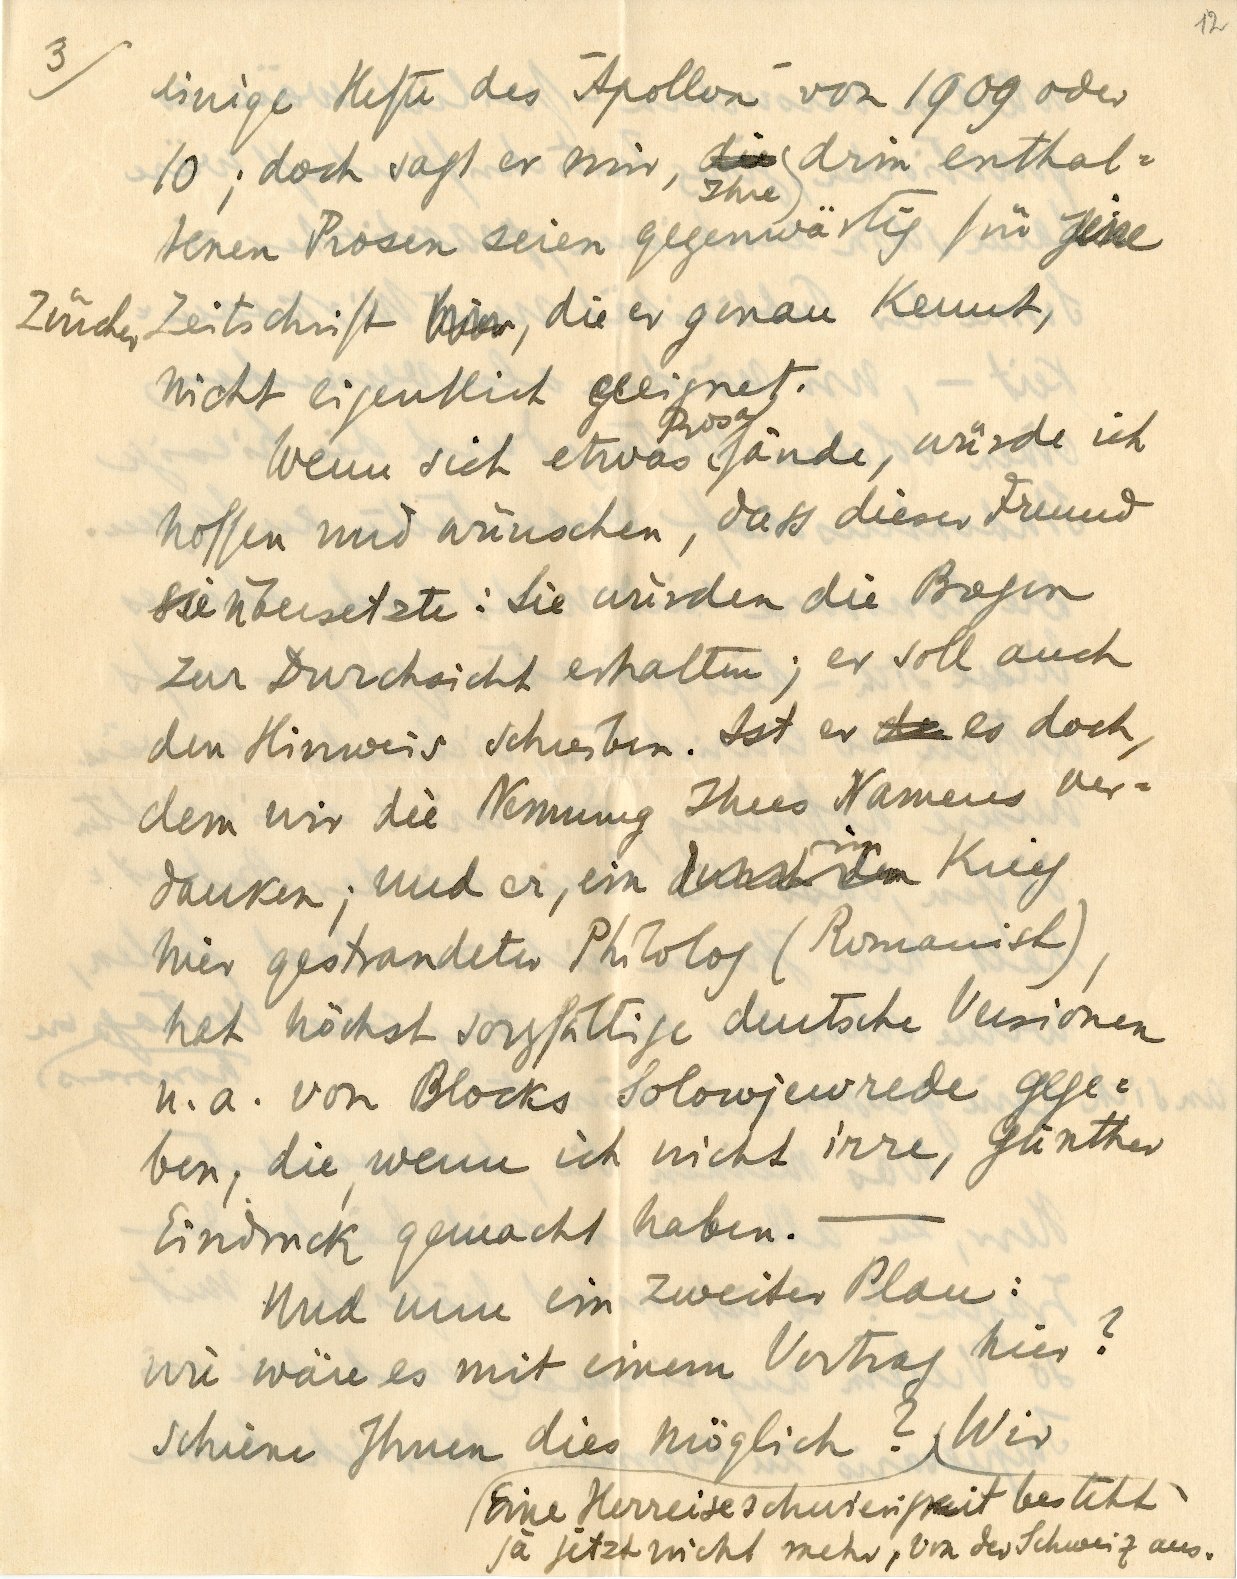 3/
12
einige Hefte des "Apollon" von 1909 oder
10; doch sagt er mir, die drin enthal=
Ihre
tenen Prosen seien gegenwärtig für jene
Züricher Zeitschrift hier, die er genau kennt,
nicht eigentlich geeignet.
Wenn sich etwas Prosa fände, würde ich
hoffen und wünschen, dass dieser Freund
sie übersetzte: Sie würden die Bogen
zur Durchsicht erhalten; er soll auch
den Hinweis schreiben. Ist er es doch,
dem wir die Nennung Ihres Namens ver=
danken; und er, ein im Krieg
hier gestrandeter Philolog (Romanist),
hat höchst sorgfältige deutsche Versionen
u. a. von Blocks Solowjewrede gege=
ben, die, wenn ich nicht irre, Günther
Eindruck gemacht haben. —
Und nun ein zweiter Plan:
wie wäre es mit einem Vortrag hier?
schiene Ihnen dies möglich? Wir
(Eine Herreiseschwierigkeit besteht
ja jetzt nicht mehr, von der Schweiz aus.